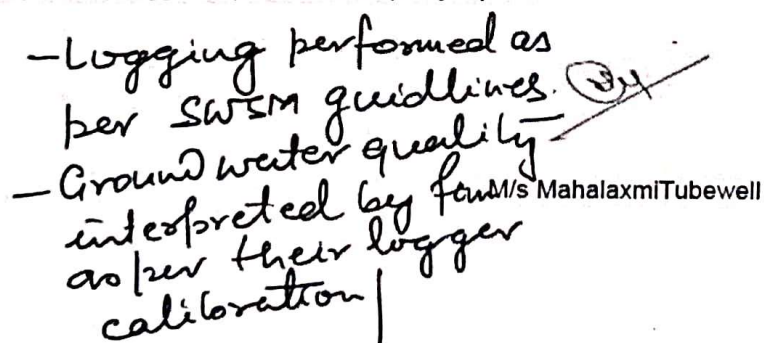 - Logging performed as
per SWSM guidlines.
- Ground water quality
interpreted by firm M/s MahalaxmiTubewell
as per their logger
calibration